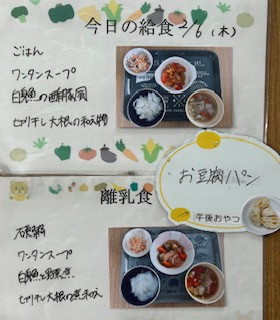 今日の給食 2/6 (木)
ごはん
ワンタンスープ
白身魚の酢豚風
切り干し大根の和え物
お豆腐パン
午後おやつ
離乳食
ワンタンスープ
白身魚と野菜煮
切り干し大根の煮和え